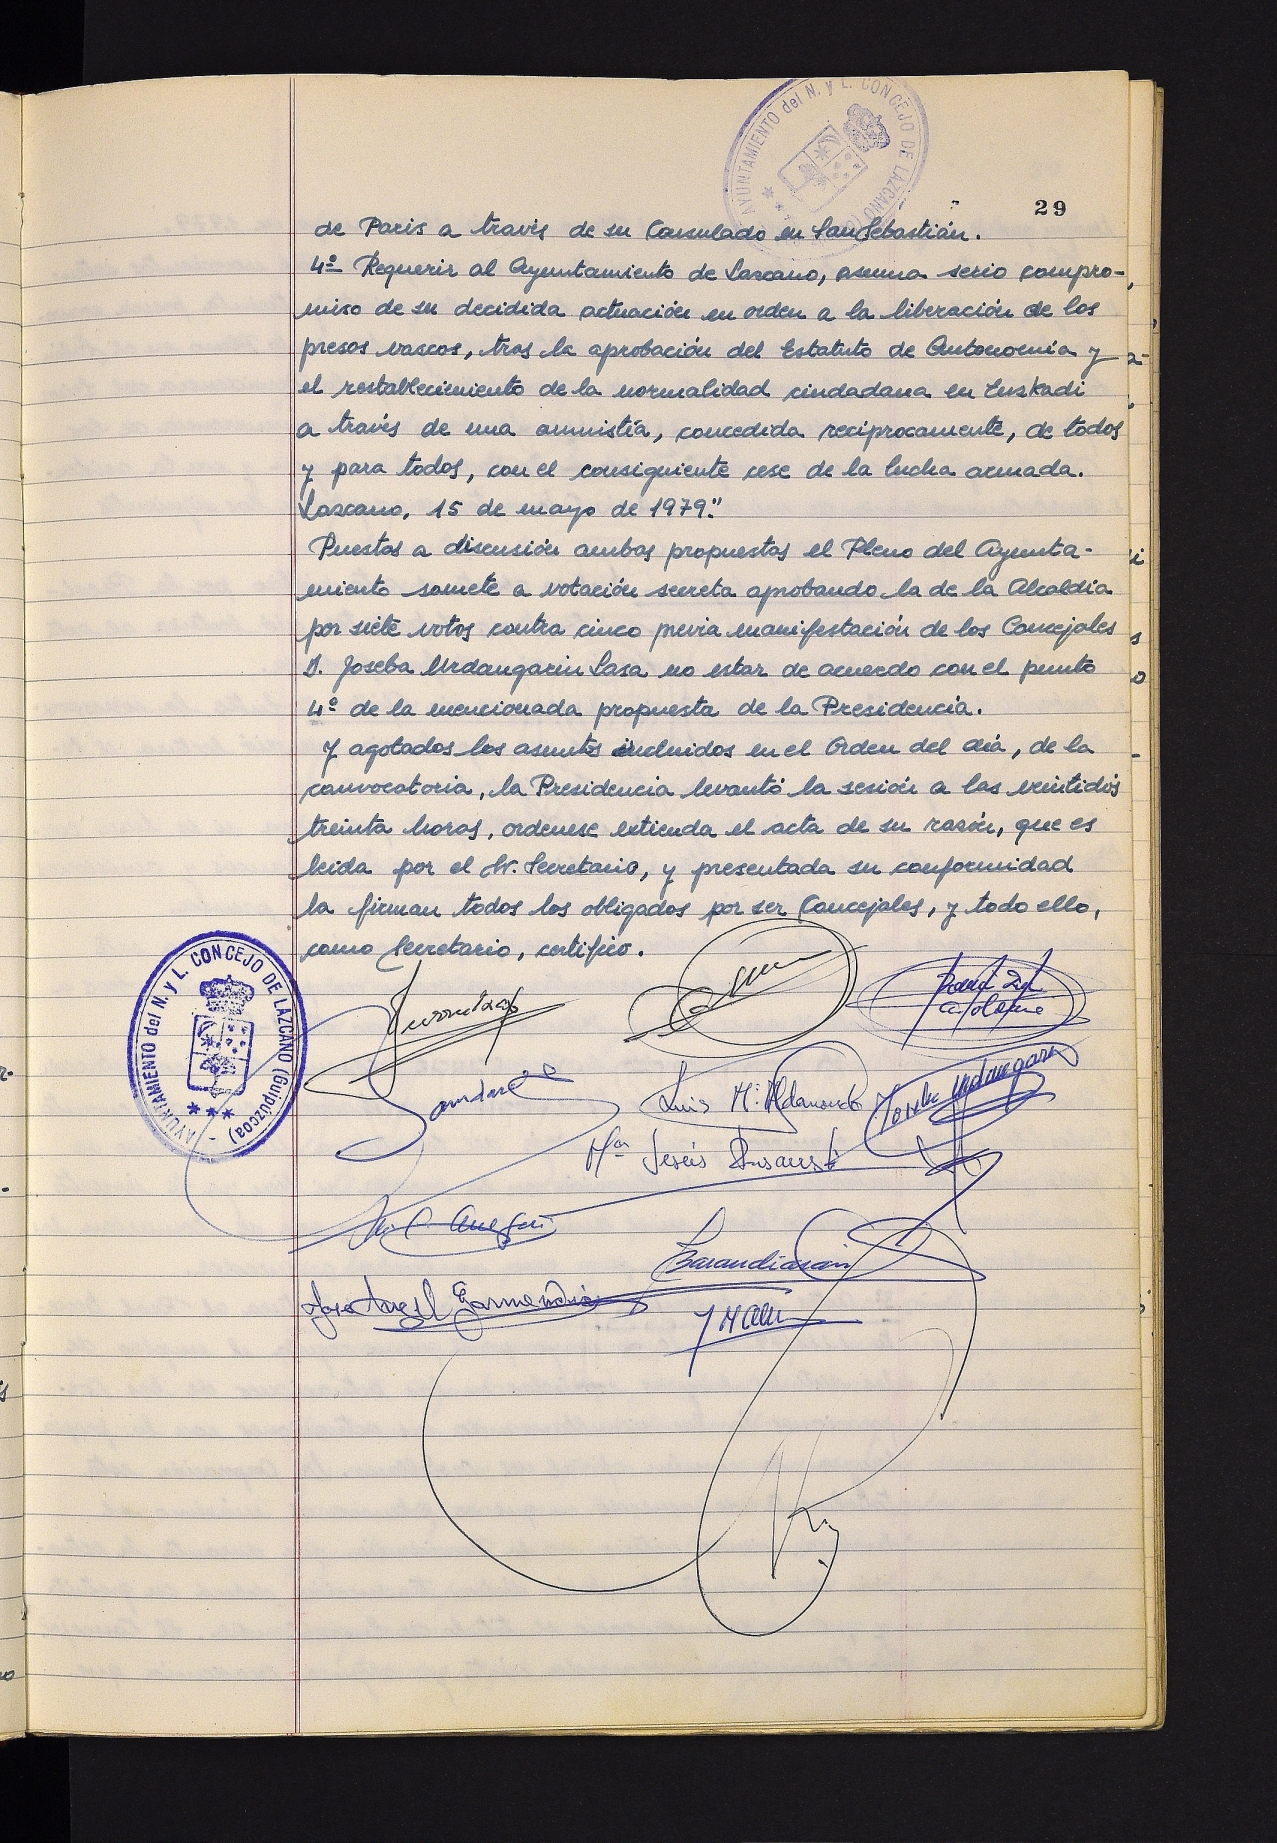 AYUNTAMIENTO del N. y L. CONCEJO DE LAZCANO
29
de Paris a través de su Consulado en San Sebastián.
4º Requerir al Ayuntamiento de Lazcano, asuma serio compro-
miso de su decidida actuación en orden a la liberación de los
presos vascos, tras la aprobación del Estatuto de Autonomía y
el restablecimiento de la normalidad ciudadana en Euzkadi
a través de una amnistía, concedida reciprocamente, de todos
y para todos, con el consiguiente cese de la lucha armada.
Lazcano, 15 de mayo de 1979."
Puestas a discusión ambas propuestas el Pleno del Ayunta-
miento somete a votación secreta aprobando la de la Alcaldía
por siete votos contra cinco previa manifestación de los Concejales
D. Joseba Urdangarin Lasa no estar de acuerdo con el punto
4º de la mencionada propuesta de la Presidencia.
Y agotados los asuntos incluidos en el Orden del día, de la
convocatoria, la Presidencia levantó la sesión a las veintidós
treinta horas, ordenese extienda el acta de su razón, que es
leida por el Sr. Secretario, y presentada su conformidad
la firman todos los obligados por ser Concejales, y todo ello,
como Secretario, certifico.
AYUNTAMIENTO del N. y L. CONCEJO DE LAZCANO (Guipúzcoa)
Luis Mª Aldanondo
Joseba Urdangarin
Mª Jesús
Barandiaran
Jose Angel Garmendia